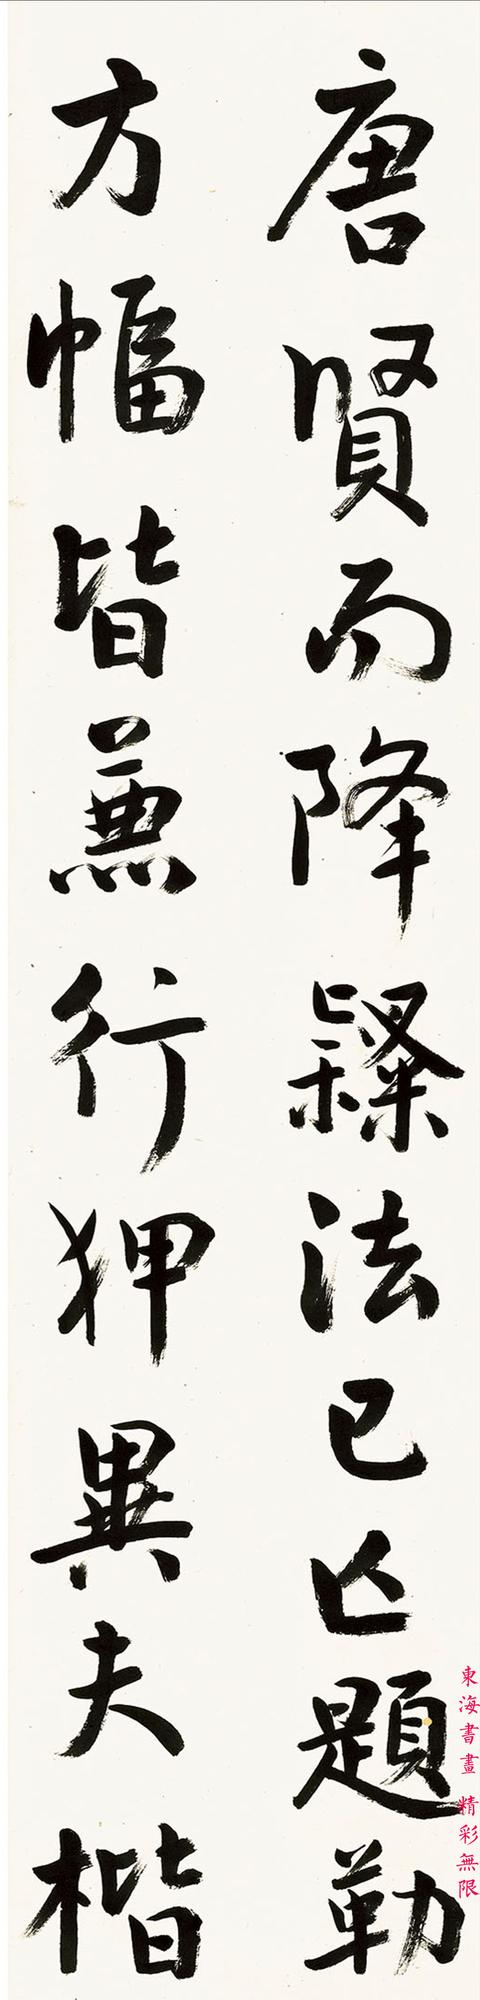 唐賢而降隸法已亡題勒
方幅皆兼行狎異夫楷
東海書畫 精彩無限